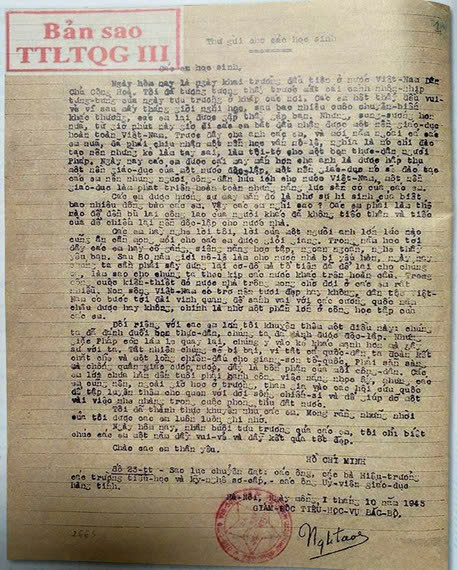 Bản sao
TTLTQG III
Thư gửi cho các học sinh
Các em học sinh,
Ngày hôm nay là ngày khai trường đầu tiên ở nước Việt-Nam Dân
Chủ Cộng Hoà. Tôi đã tưởng tượng thấy trước mắt cái cảnh nhộn-nhịp
tưng-bừng của ngày tựu trường ở khắp các nơi. Các em hết thảy đều vui-
vẻ vì sau mấy tháng giời nghỉ học, sau bao nhiêu cuộc chuyển-biến
khác thường, các em lại được gặp thầy, gặp bạn. Nhưng, sung-sướng hơn
nữa, từ giờ phút này giở đi các em bắt đầu nhận được một nền giáo-dục
hoàn toàn Việt-Nam. Trước đây cha anh các em, và mới năm ngoái cả các
em nữa, đã phải chịu nhận một nền học vấn nô-lệ, nghĩa là nó chỉ đào
tạo nên những kẻ làm tay sai, làm tôi-tớ cho một bọn thực-dân người
Pháp. Ngày nay các em được cái may mắn hơn cha anh là được hấp thụ
một nền giáo-dục của một nước độc-lập, một nền giáo-dục nó sẽ đào tạo
các em nên những người công-dân hữu ích cho nước Việt-Nam, một nền
giáo-dục làm phát-triển hoàn toàn những năng lực sẵn có của các em.
Các em được hưởng sự may mắn đó là nhờ sự hi sinh của biết
bao nhiêu đồng bào các em. Vậy các em nghĩ sao? Các em phải làm thế
nào để đền bù lại công lao của người khác đã không tiếc thân và tiếc
của để chiếm lại nền độc-lập cho nước nhà.
Các em hãy nghe lời tôi, lời của một người anh lớn lúc nào
cũng ân cần mong mỏi cho các em được giỏi giang. Trong năm học tới
đây các em hãy cố gắng, siêng năng học tập, ngoan ngoãn, nghe thầy
yêu bạn. Sau 80 năm giời nô-lệ làm cho nước nhà bị yếu hèn, ngày nay
chúng ta cần phải xây dựng lại cơ-đồ mà tổ tiên đã để lại cho chúng
ta, làm sao cho chúng ta theo kịp các nước khác trên hoàn cầu. Trong
công cuộc kiến-thiết đó nước nhà trông mong chờ đợi ở các em rất
nhiều. Non sông Việt-Nam có trở nên tươi đẹp hay không, dân tộc Việt-
Nam có bước tới đài vinh quang để sánh vai với các cường quốc năm
châu được hay không, chính là nhờ một phần lớn ở công học tập của
các em.
Đối riêng với các em lớn tôi khuyên thêm một điều này: chúng
ta đã đánh đuổi bọn thực-dân, chúng ta đã dành được độc-lập. Nhưng
giặc Pháp còn lăm le quay lại, chúng ỷ vào kẻ khác mạnh hơn mà gây
sự với ta. Tất nhiên chúng sẽ bị bại, vì tất cả quốc-dân ta đoàn kết
chặt chẽ và một lòng chiến-đấu cho giang-sơn tổ-quốc. Phải sẵn sàng
mà chống quân giặc cướp nước, đấy là bổn phận của mỗi công-dân. Các
em lớn chưa hẳn đến tuổi phải gánh công việc nặng nhọc ấy nhưng, các
em cũng nên, ngoài giờ học ở trường, tham gia vào các hội cứu quốc
để tập luyện thêm cho quen với đời sống chiến-sĩ và để giúp đỡ một
vài việc nhẹ nhàng trong cuộc phòng thủ đất nước.
Tôi đã thành thực khuyên nhủ các em. Mong rằng những nhời
của tôi được các em luôn luôn ghi nhớ.
Ngày hôm nay, nhân buổi tựu trường của các em, tôi chỉ biết
chúc các em một năm đầy vui-vẻ và đầy kết quả tốt đẹp.
Chào các em thân yêu.
HỒ CHÍ MINH
Số 23-tt - Sao lục chuyển đạt: các ông, các bà Hiệu-trưởng
các trường tiểu-học và kỹ-nghệ sơ-cấp,- các ông Uỷ-viên giáo-dục
hàng tỉnh.
Hà-Nội, Ngày mồng I tháng 10 năm 1945
GIÁM-ĐỐC TIỂU-HỌC-VỤ BẮC-BỘ.